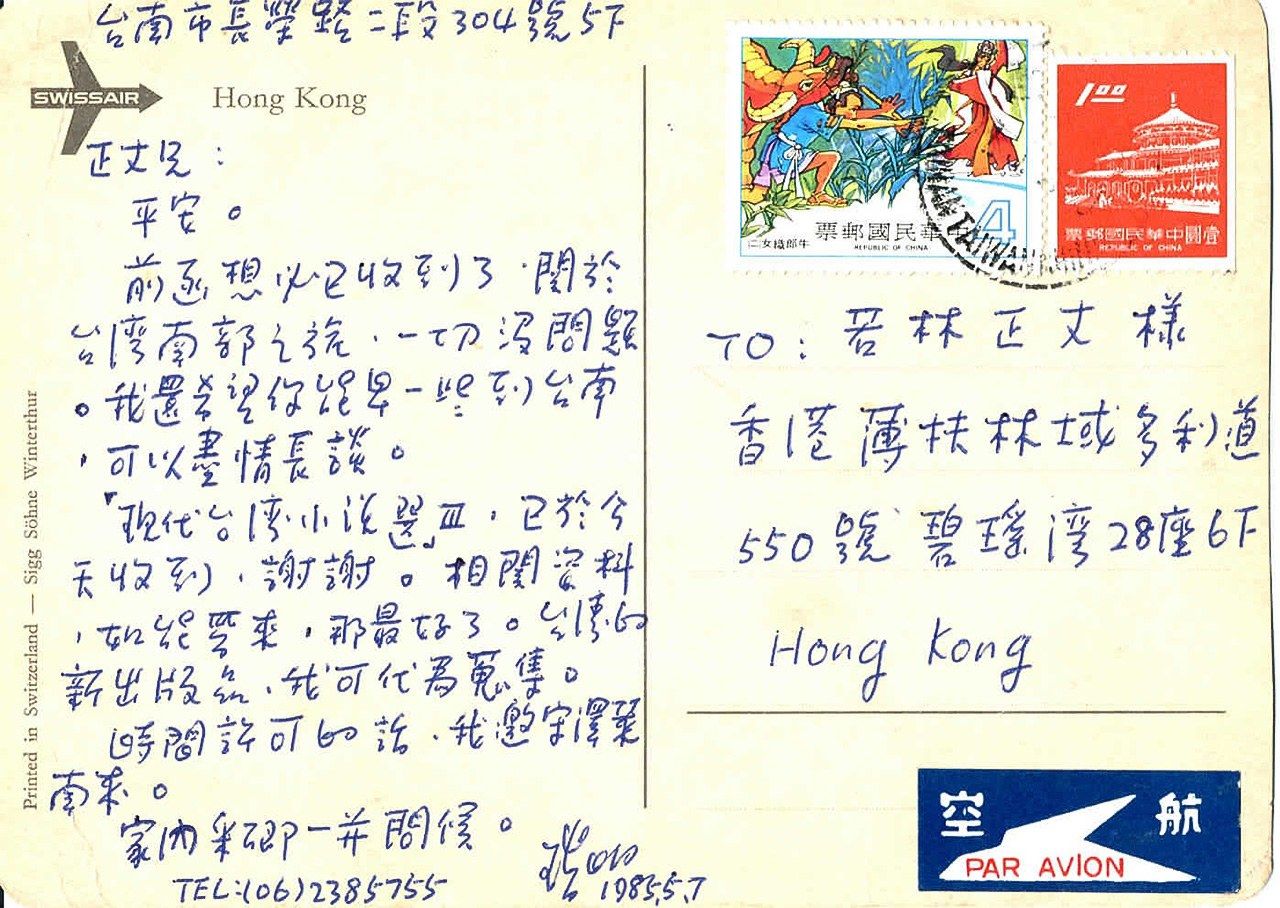 台南市長榮路二段304號5F
SWISSAIR
Hong Kong
正丈兄：
平安。
前函想必已收到了，關於
台湾南部之旅，一切沒問題
。我還希望你能早一些到台南
，可以盡情長談。
「現代台湾小说選」Ⅲ，已於今
天收到，謝謝。相關資料
，如能寄來，那最好了。台湾的
新出版品，我可代為蒐集。
時間許可的話，我邀宋澤萊
南來。
家內釆卿一并問候。
1985.5.7
TEL:(06)2385755
Printed in Switzerland — Sigg Söhne Winterthur
4
票郵國民華中
REPUBLIC OF CHINA
二女織郎牛
TAIWAN
1.00
票郵國民華中圓壹
REPUBLIC OF CHINA
TO：若林正丈様
香港薄扶林域多利道
550號碧瑤湾28座6F
Hong Kong
空航
PAR AVION